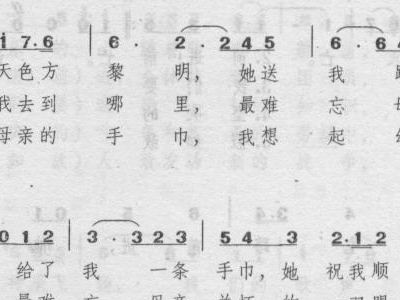 i 7·6 | 6 · 2 · 2 4 5 | 6 · 6
天色方 黎 明， 她送 我
我去到 哪 里， 最难 忘
母亲的 手 巾， 我想 起
0 1 2 | 3 · 3 2 3 | 5 4 · 3 2·1 2
给了 我 一条 手巾，她 祝我顺